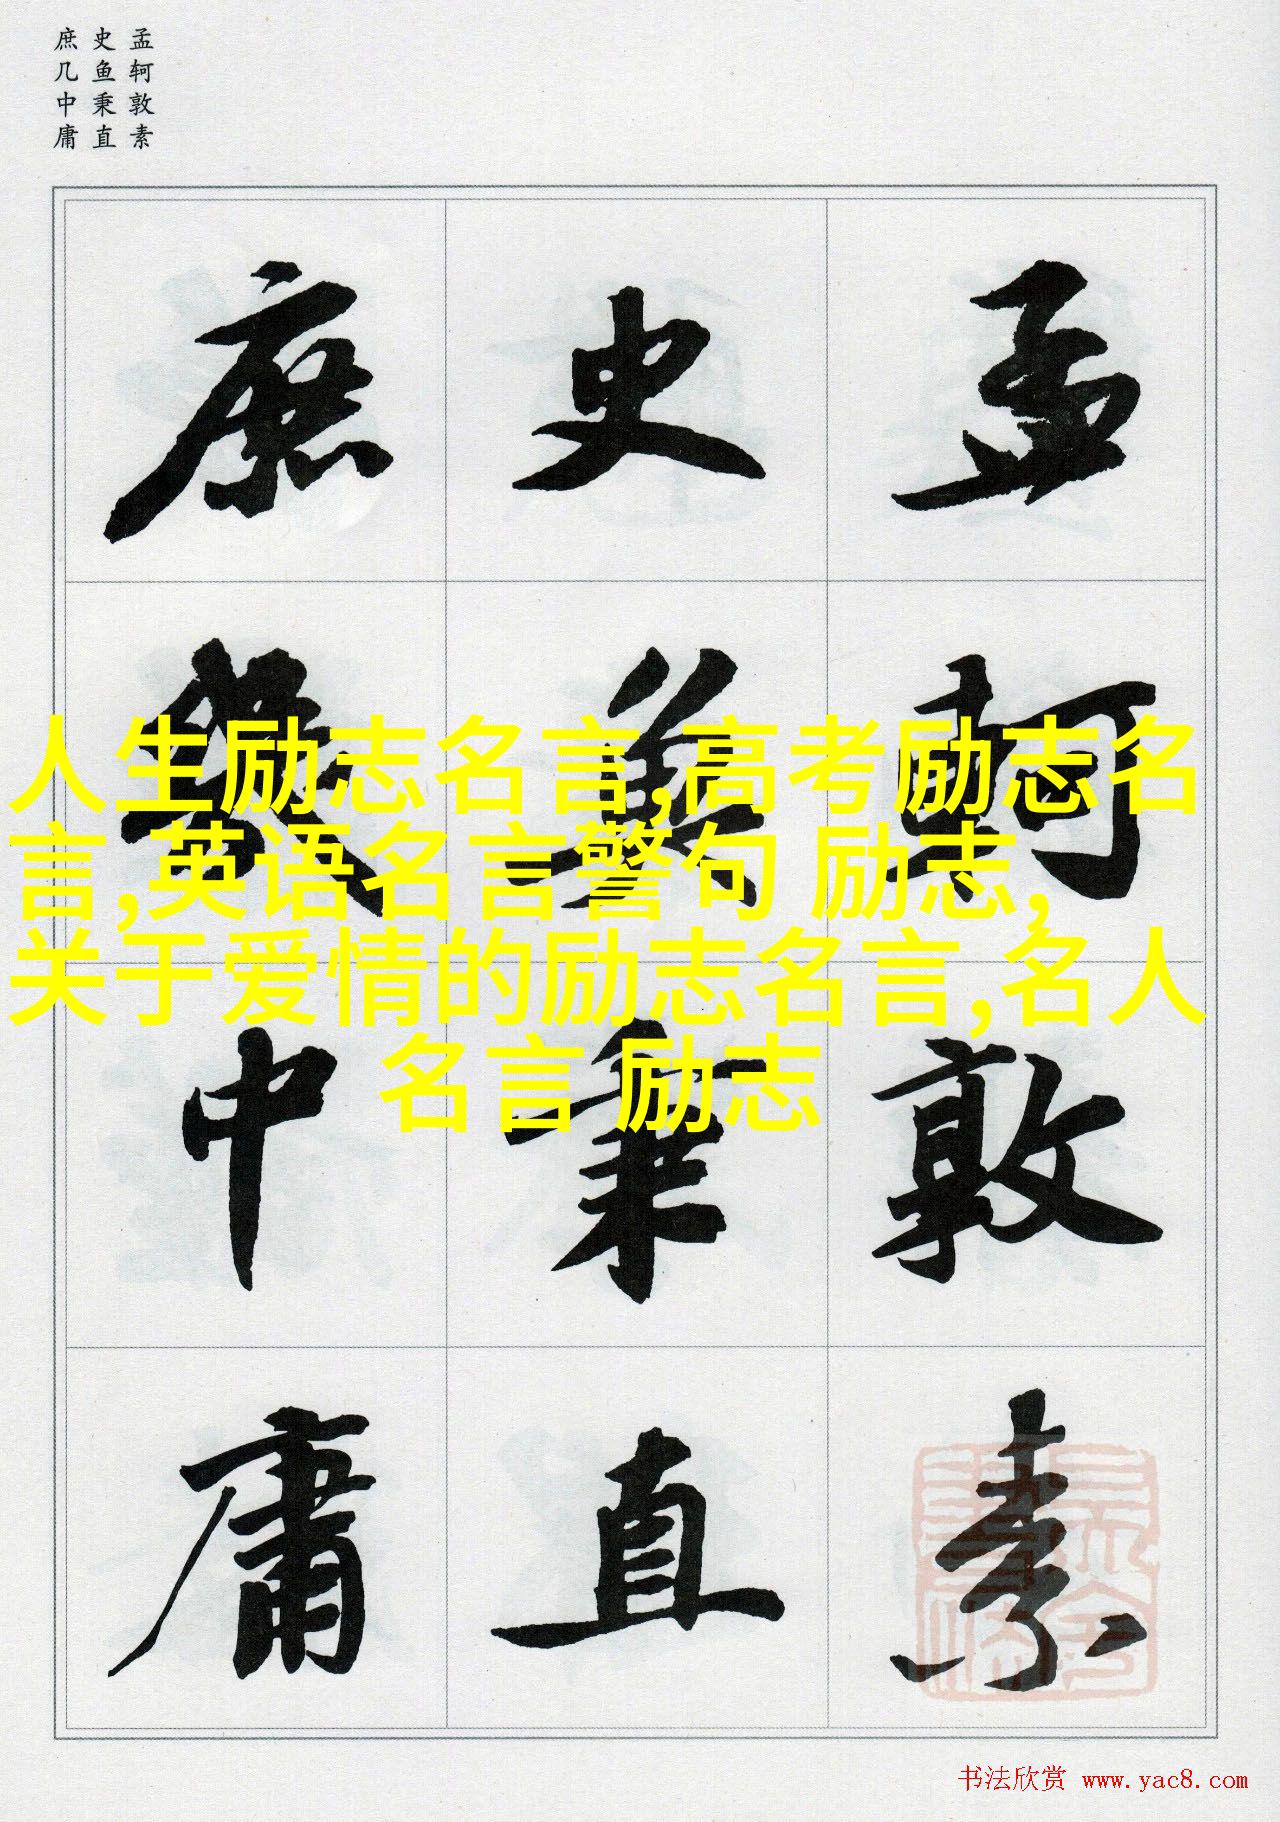 孟轲敦素
史鱼秉直
庶几中庸
孟軻敦素
史魚秉直
庶幾中庸
人生励志名言,高考励志名
言,英语名言警句 励志,
关于爱情的励志名言,名人
名言 励志
书法欣赏 www.yac8.com